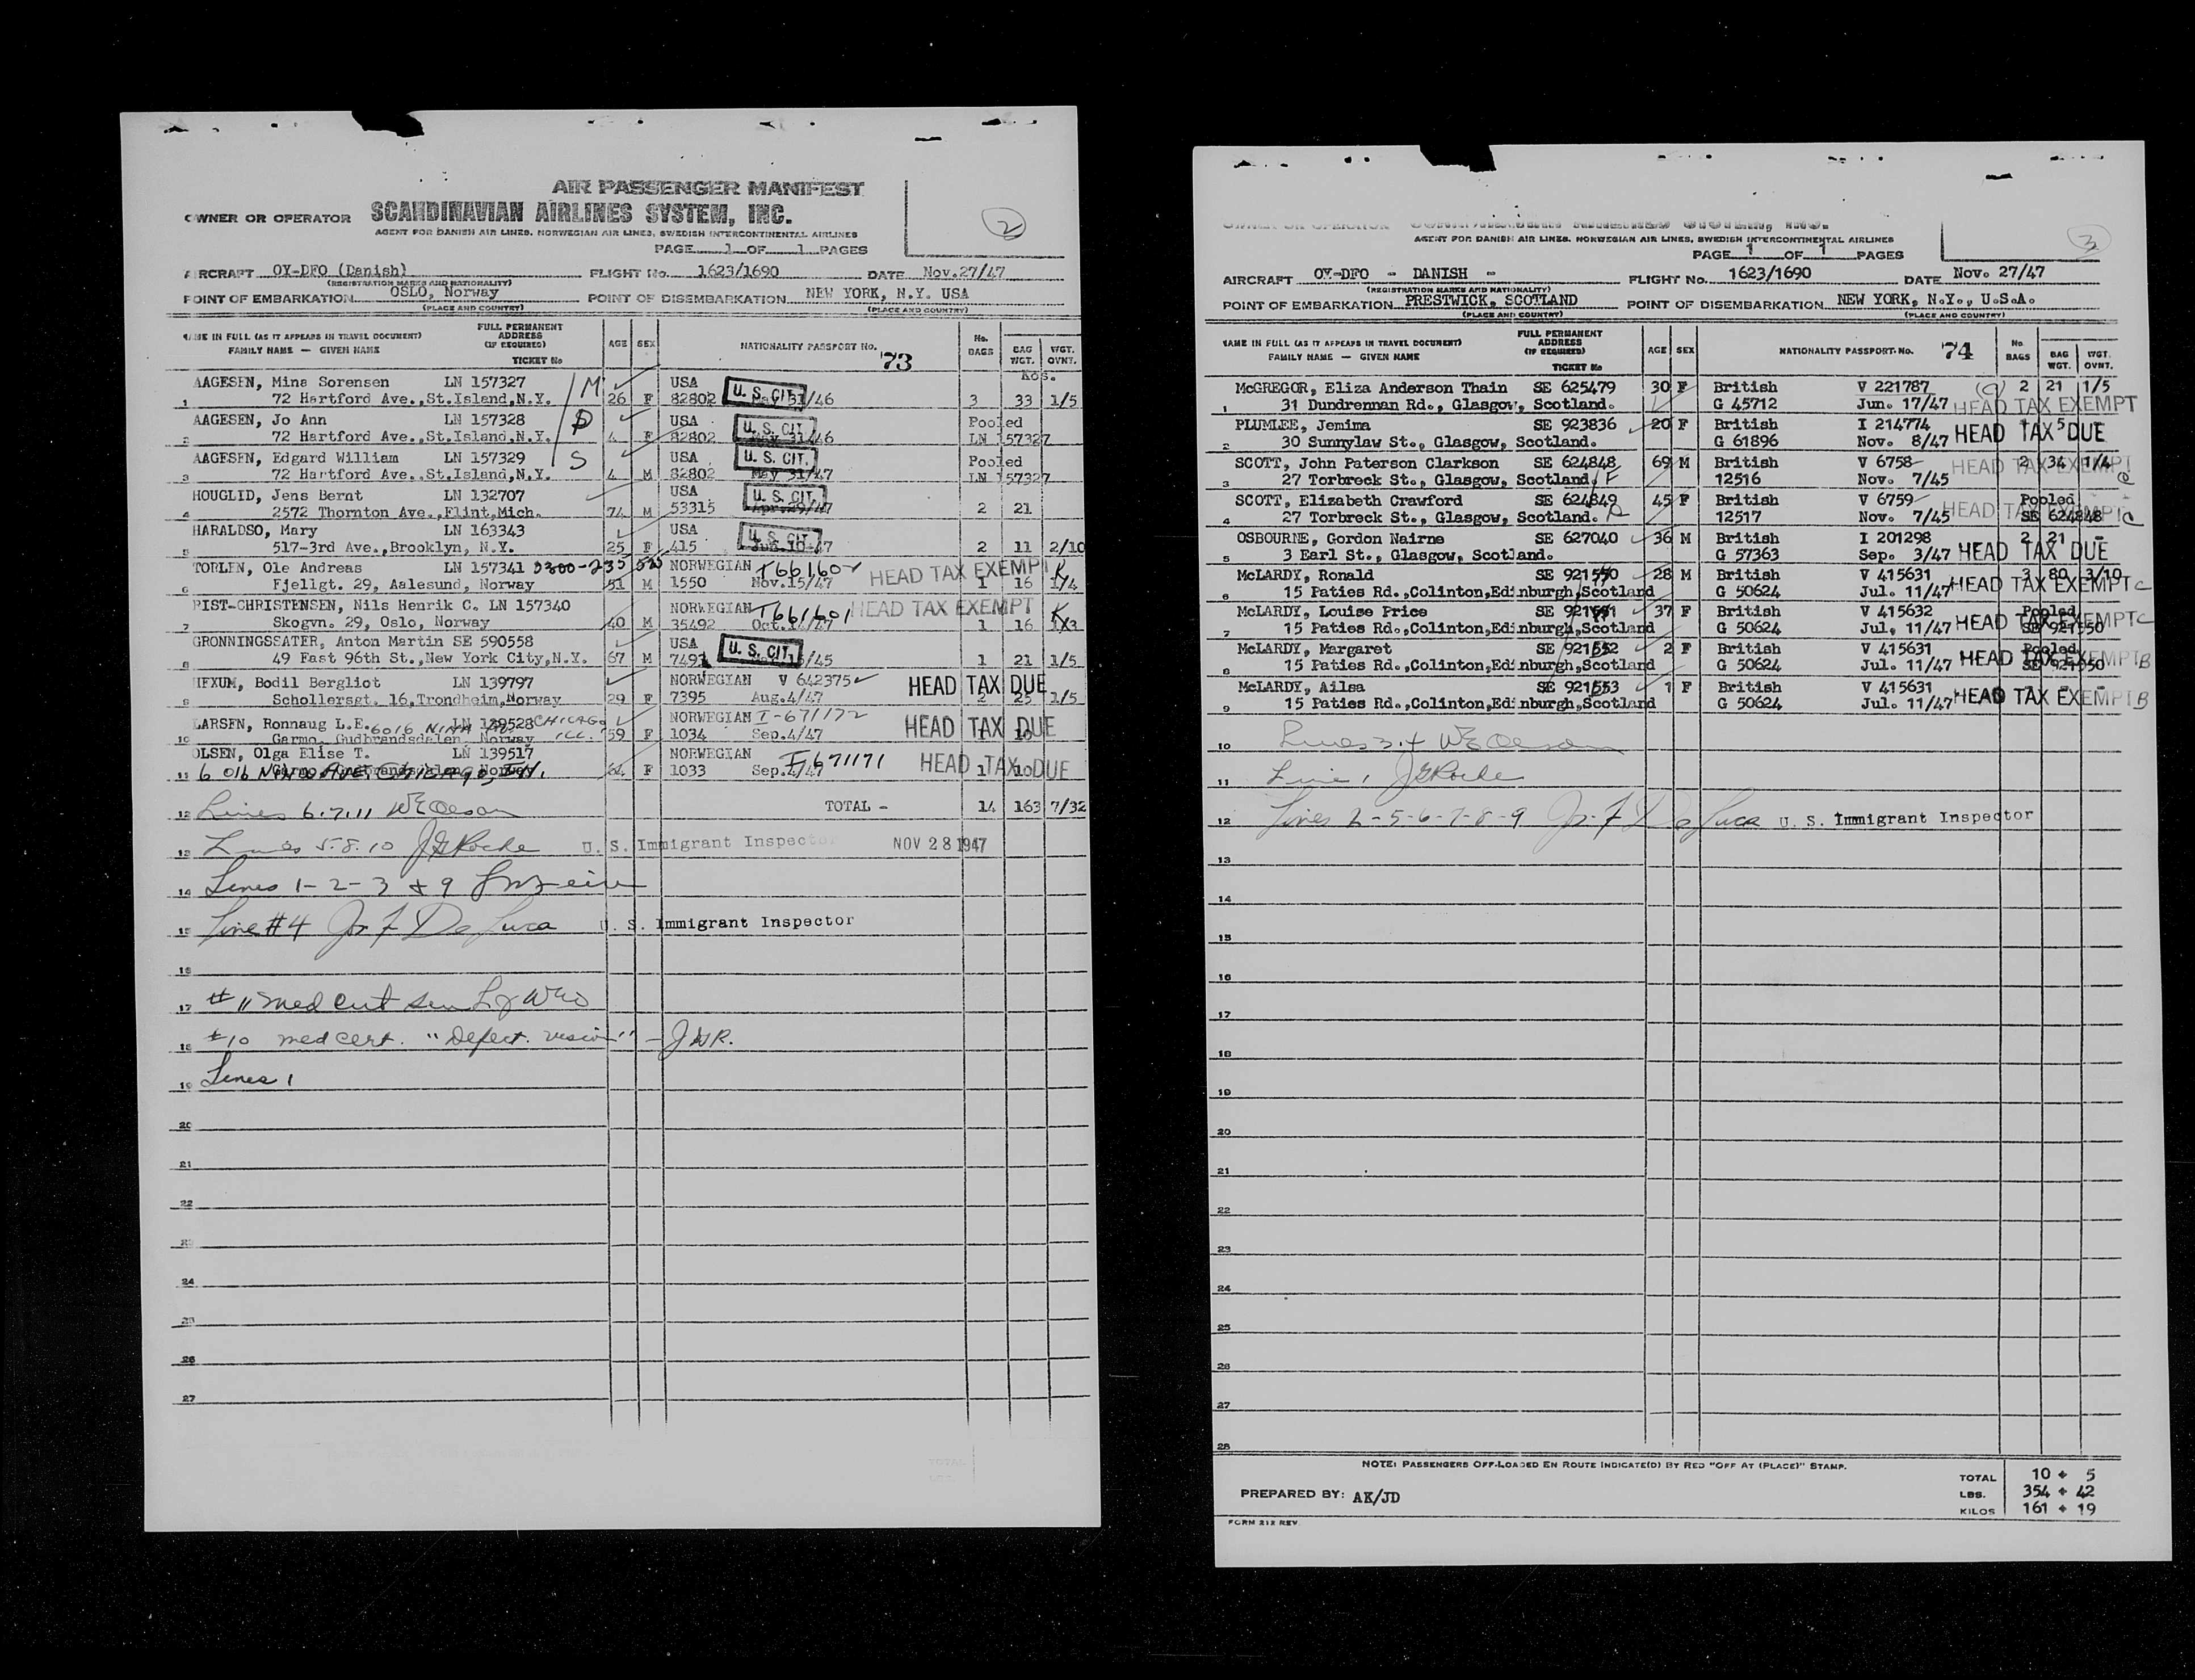 AIR PASSENGER MANIFEST
OWNER OR OPERATOR SCANDINAVIAN AIRLINES SYSTEM, INC.
2
AGENT FOR DANISH AIR LINES, NORWEGIAN AIR LINES, SWEDISH INTERCONTINENTAL AIRLINES
PAGE 1 OF 1 PAGES
AIRCRAFT OY-DFO (Danish) FLIGHT No. 1623/1690 DATE Nov.27/47
(REGISTRATION MARKS AND NATIONALITY)
POINT OF EMBARKATION OSLO, Norway POINT OF DISEMBARKATION NEW YORK, N.Y. USA
(PLACE AND COUNTRY) (PLACE AND COUNTRY)
NAME IN FULL (AS IT APPEARS IN TRAVEL DOCUMENT) FULL PERMANENT ADDRESS (IF REQUIRED) AGE SEX NATIONALITY PASSPORT No. 73 No. BAGS BAG WGT. WGT. OVNT.
FAMILY NAME — GIVEN NAME TICKET No
KGS.
AAGESEN, Mina Sorensen LN 157327 M USA U. S. CIT.
1 72 Hartford Ave.,St.Island,N.Y. 26 F 82802 May 31/46 3 33 1/5
AAGESEN, Jo Ann LN 157328 D USA U. S. CIT. Pooled
2 72 Hartford Ave.,St.Island,N.Y. 4 F 82802 May 31/46 LN 157327
AAGESEN, Edgard William LN 157329 S USA U. S. CIT. Pooled
3 72 Hartford Ave.,St.Island,N.Y. 4 M 82802 May 31/47 LN 157327
HOUGLID, Jens Bernt LN 132707 USA U. S. CIT.
4 2572 Thornton Ave.,Flint,Mich. 74 M 53315 Apr.29/47 2 21
HARALDSO, Mary LN 163343 USA U. S. CIT.
5 517-3rd Ave.,Brooklyn, N.Y. 25 F 415 Jun.10-47 2 11 2/10
TORLEN, Ole Andreas LN 157341 NORWEGIAN T661602 HEAD TAX EXEMPT K
6 Fjellgt. 29, Aalesund, Norway 51 M 1550 Nov.15/47 1 16 1/4
RIST-CHRISTENSEN, Nils Henrik C. LN 157340 NORWEGIAN T661601 HEAD TAX EXEMPT K
7 Skogvn. 29, Oslo, Norway 40 M 35492 1 16 1/3
GRONNINGSSATER, Anton Martin SE 590558 USA U. S. CIT.
8 49 East 96th St.,New York City,N.Y. 67 M 1 21 1/5
HEXUM, Bodil Bergliot LN 139797 NORWEGIAN V 642375 HEAD TAX DUE
9 Schollersgt. 16,Trondheim,Norway 29 F 7395 Aug.4/47 2 25 1/5
LARSEN, Ronnaug L.E. 6016 NINA AVE LN 139528 CHICAGO ILL. NORWEGIAN I-671172 HEAD TAX DUE
10 Garmo, Gudbrandsdalen, Norway 59 F 1034 Sep.4/47 1 10
OLSEN, Olga Elise T. LN 139517 NORWEGIAN I671171 HEAD TAX DUE
11 6016 Nina Ave, Chicago, Ill. 64 F 1033 Sep.4/47 1 10
12 Lines 6.7.11 W E Olesan TOTAL - 14 163 7/32
13 Lines 5.8.10 JGRoche U. S. Immigrant Inspector NOV 28 1947
14 Lines 1-2-3 & 9
15 Line #4 Jos F De Luca U. S. Immigrant Inspector
16
17 #11 med cert
18 #10 med cert. "Defect. vision" - JGR.
19 Lines 1
20
21
22
23
24
25
26
27
TOTAL
LBS.
SCANDINAVIAN AIRLINES SYSTEM, INC.
3
AGENT FOR DANISH AIR LINES, NORWEGIAN AIR LINES, SWEDISH INTERCONTINENTAL AIRLINES
PAGE 1 OF 1 PAGES
AIRCRAFT OY-DFO - DANISH - FLIGHT No. 1623/1690 DATE Nov. 27/47
(REGISTRATION MARKS AND NATIONALITY)
POINT OF EMBARKATION PRESTWICK, SCOTLAND POINT OF DISEMBARKATION NEW YORK, N.Y., U.S.A.
(PLACE AND COUNTRY) (PLACE AND COUNTRY)
NAME IN FULL (AS IT APPEARS IN TRAVEL DOCUMENT) FULL PERMANENT ADDRESS (IF REQUIRED) AGE SEX NATIONALITY PASSPORT No. 74 No BAGS BAG WGT. WGT. OVNT.
FAMILY NAME — GIVEN NAME TICKET No
McGREGOR, Eliza Anderson Thain SE 625479 30 F British V 221787 (a) 2 21 1/5
1 31 Dundrennan Rd., Glasgow, Scotland. G 45712 Jun. 17/47 HEAD TAX EXEMPT
PLUMLEE, Jemima SE 923836 20 F British I 214774
2 30 Sunnylaw St., Glasgow, Scotland. G 61896 Nov. 8/47 HEAD TAX DUE
SCOTT, John Paterson Clarkson SE 624848 69 M British V 6758 HEAD TAX EXEMPT 2 34 1/4
3 27 Torbreck St., Glasgow, Scotland. 12516 Nov. 7/45 C
SCOTT, Elizabeth Crawford SE 624849 45 F British V 6759 Pooled
4 27 Torbreck St., Glasgow, Scotland. 12517 Nov. 7/45 HEAD TAX EXEMPT SE 624848 C
OSBOURNE, Gordon Nairne SE 627040 36 M British I 201298 2 21 -
5 3 Earl St., Glasgow, Scotland. G 57363 Sep. 3/47 HEAD TAX DUE
McLARDY, Ronald SE 921550 28 M British V 415631 3 80 3/10
6 15 Paties Rd.,Colinton,Edinburgh,Scotland G 50624 Jul. 11/47 HEAD TAX EXEMPT C
McLARDY, Louise Price 37 F British V 415632 Pooled
7 15 Paties Rd.,Colinton,Edinburgh,Scotland G 50624 Jul. 11/47 HEAD TAX EXEMPT C SE 921550
McLARDY, Margaret SE 921552 2 F British V 415631 Pooled
8 15 Paties Rd.,Colinton,Edinburgh,Scotland G 50624 Jul. 11/47 HEAD TAX EXEMPT B SE 921550
McLARDY, Ailsa SE 921553 1 F British V 415631
9 15 Paties Rd.,Colinton,Edinburgh,Scotland G 50624 Jul. 11/47 HEAD TAX EXEMPT B
10 Lines 3.4 W E Olesan
11 Line 1 JGRoche
12 Lines 2-5-6-7-8-9 Jos. F De Luca U. S. Immigrant Inspector
13
14
15
16
17
18
19
20
21
22
23
24
25
26
27
28
NOTE: PASSENGERS OFF-LOADED EN ROUTE INDICATE(D) BY RED "OFF AT (PLACE)" STAMP.
TOTAL 10 + 5
PREPARED BY: AK/JD LBS. 354 + 42
KILOS 161 + 19
FORM 212 REV.